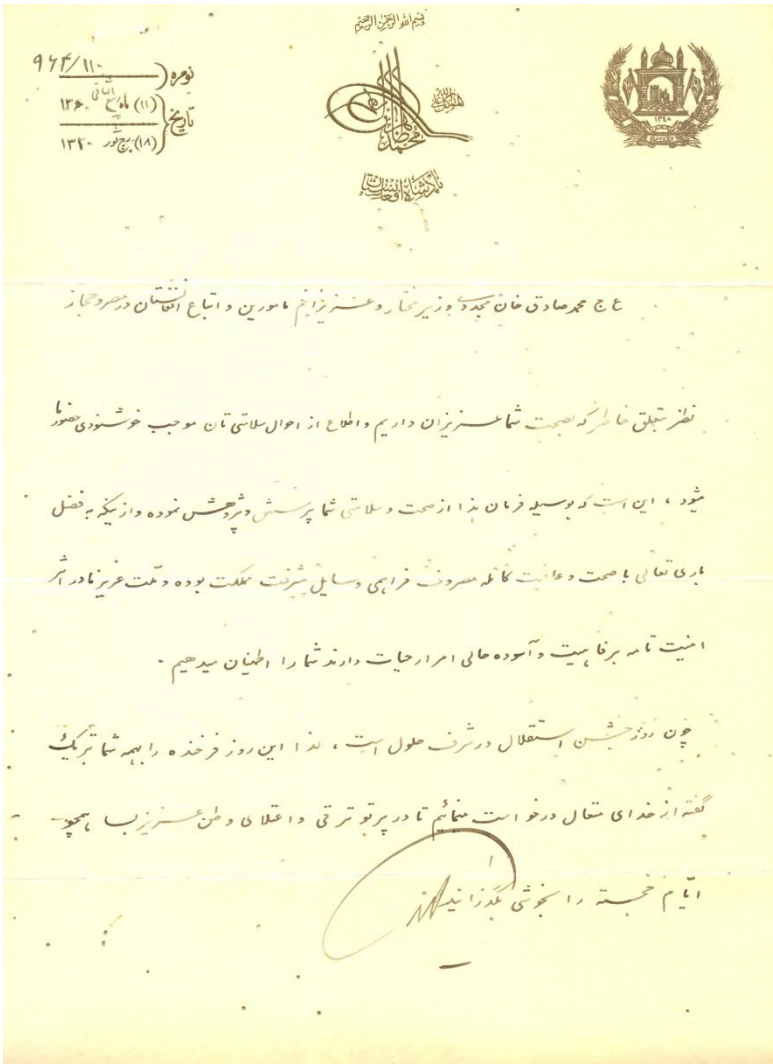 بسم الله الرحمن الرحيم
نومره ۹۶۴/۱۱۰
تاریخ (۱۱) ماه ربیع الثانی ۱۳۶۰
(۱۸) برج ثور ۱۳۲۰
محمد ظاهر
پادشاه افغانستان
۱۳۴۸
ع ج محمد صادق خان مجددی وزیر مختار و عزیزانم مامورین و اتباع افغانستان در مصر و حجاز
نظر بتعلق خاطر که بصحت شما عزیزان داریم و اطلاع از احوال سلامتی تان موجب خوشنودی حضور ما
میشود ، این است که بوسیله فرمان هذا از صحت و سلامتی شما پرسش و پژوهش نموده و از نیکه به فضل
باری تعالی با صحت و عافیت کامله مصروف فراهمی وسایل پیشرفت مملکت بوده و ملت عزیز ما در اثر
امنیت تامه برفاهیت و آسوده حالی امرار حیات دارند شما را اطمینان میدهیم .
چون روز جشن استقلال در شرف حلول است ، لذا این روز فرخنده را بهمه شما تبریک
گفته از خدای متعال درخواست مینمائیم تا در پرتو ترقی و اعتلای وطن عزیز بسا همچو
ایام خجسته را بخوشی بگذرانید